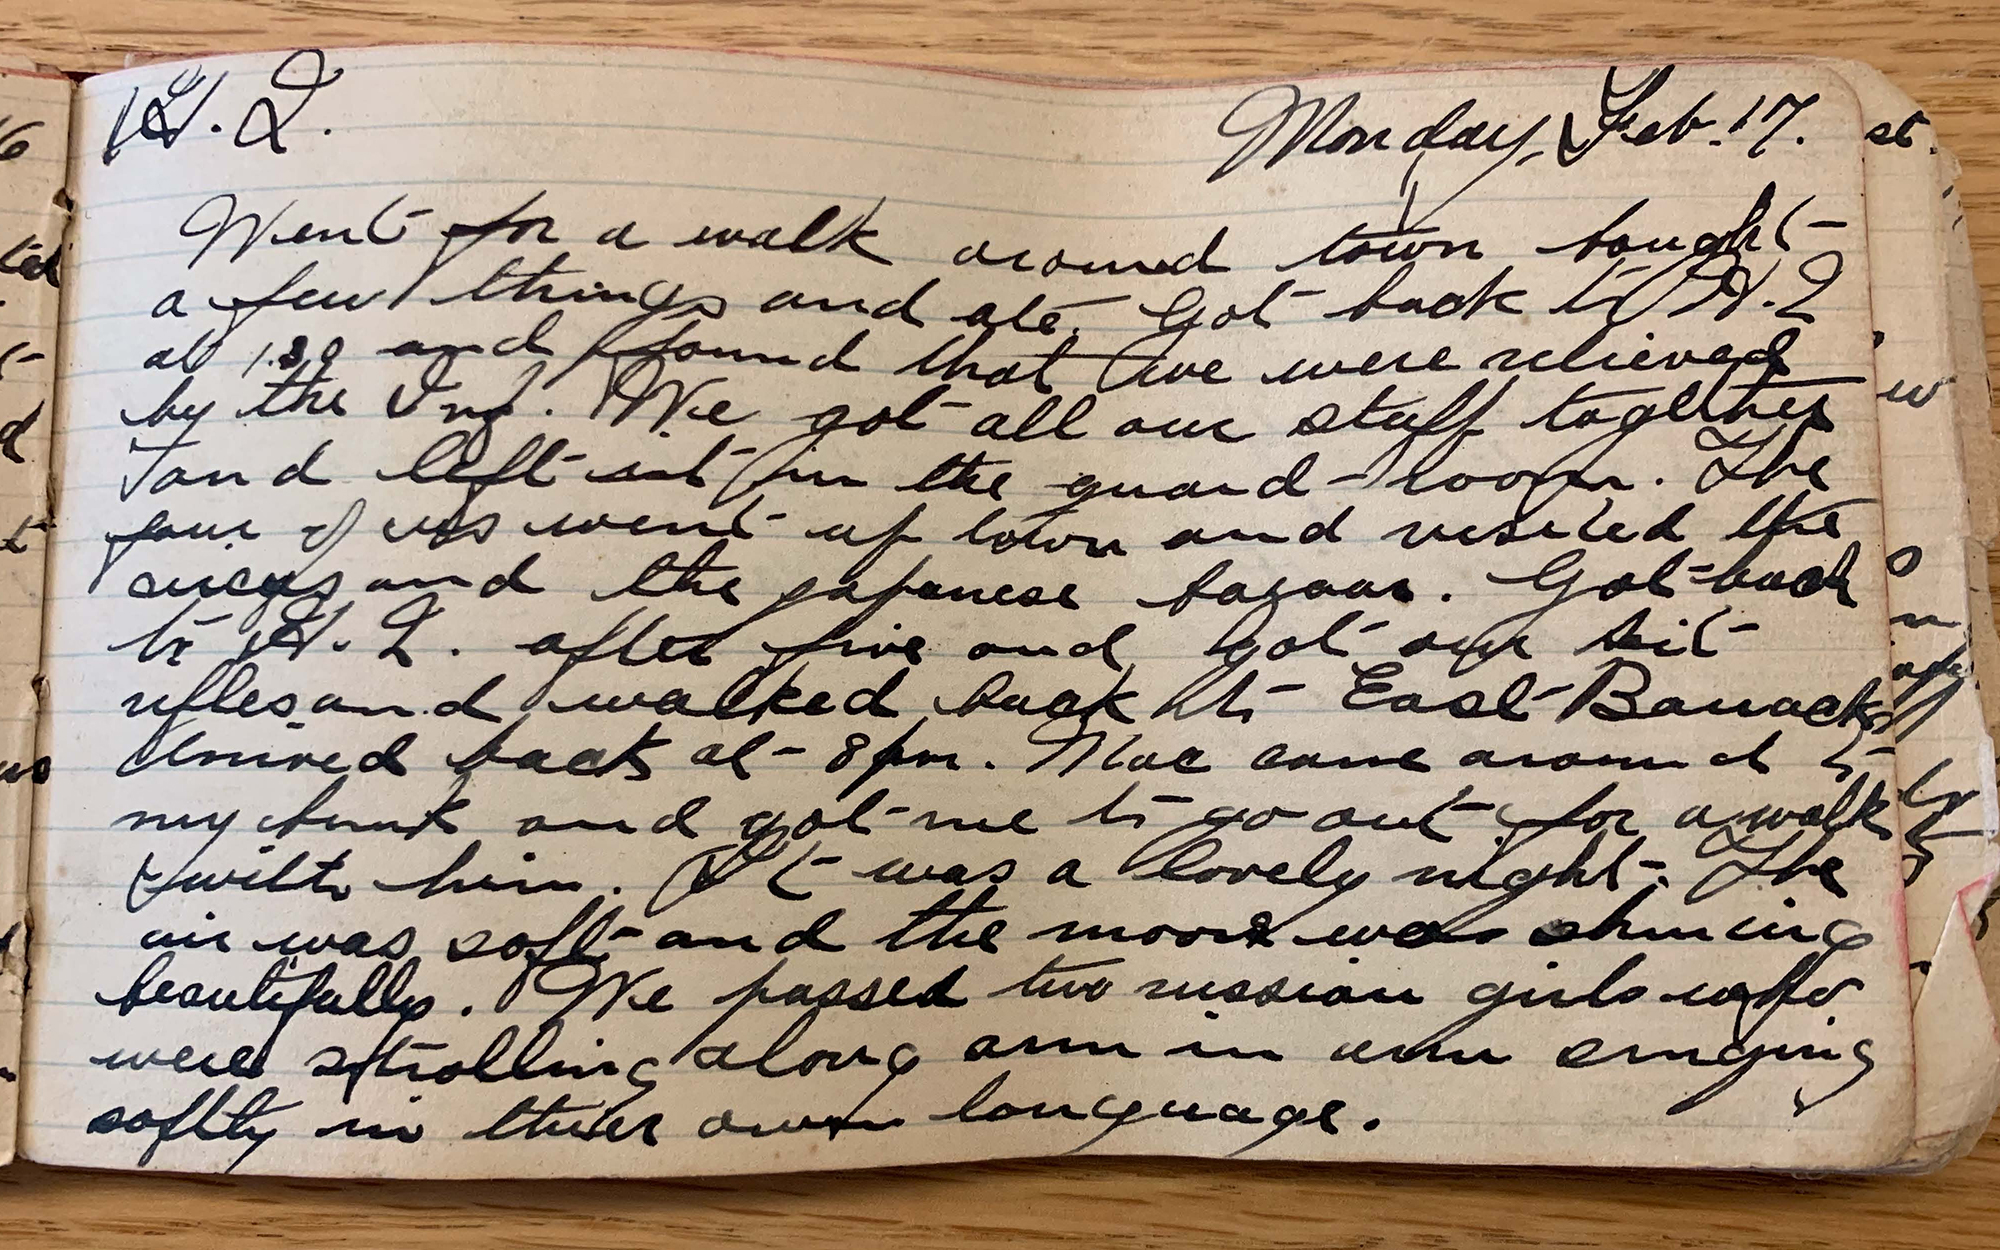 H.Q. Monday, Feb. 17.
Went for a walk around town bought
a few things and ate. Got back to H.Q
at 1.30 and found that we were relieved
by the Inf. We got all our stuff together
and left it in the guard-room. The
four of us went up town and visited the
circus and the japanese bazaar. Got back
to H.Q. after five and got our kit
rifles and walked back to East Barracks
Arrived back at 8 pm. Mac came around to
my bunk and got me to go out for a walk
with him. It was a lovely night. The
air was soft and the moon was shining
beautifully. We passed two russian girls who
were strolling along arm in arm singing
softly in their own language.